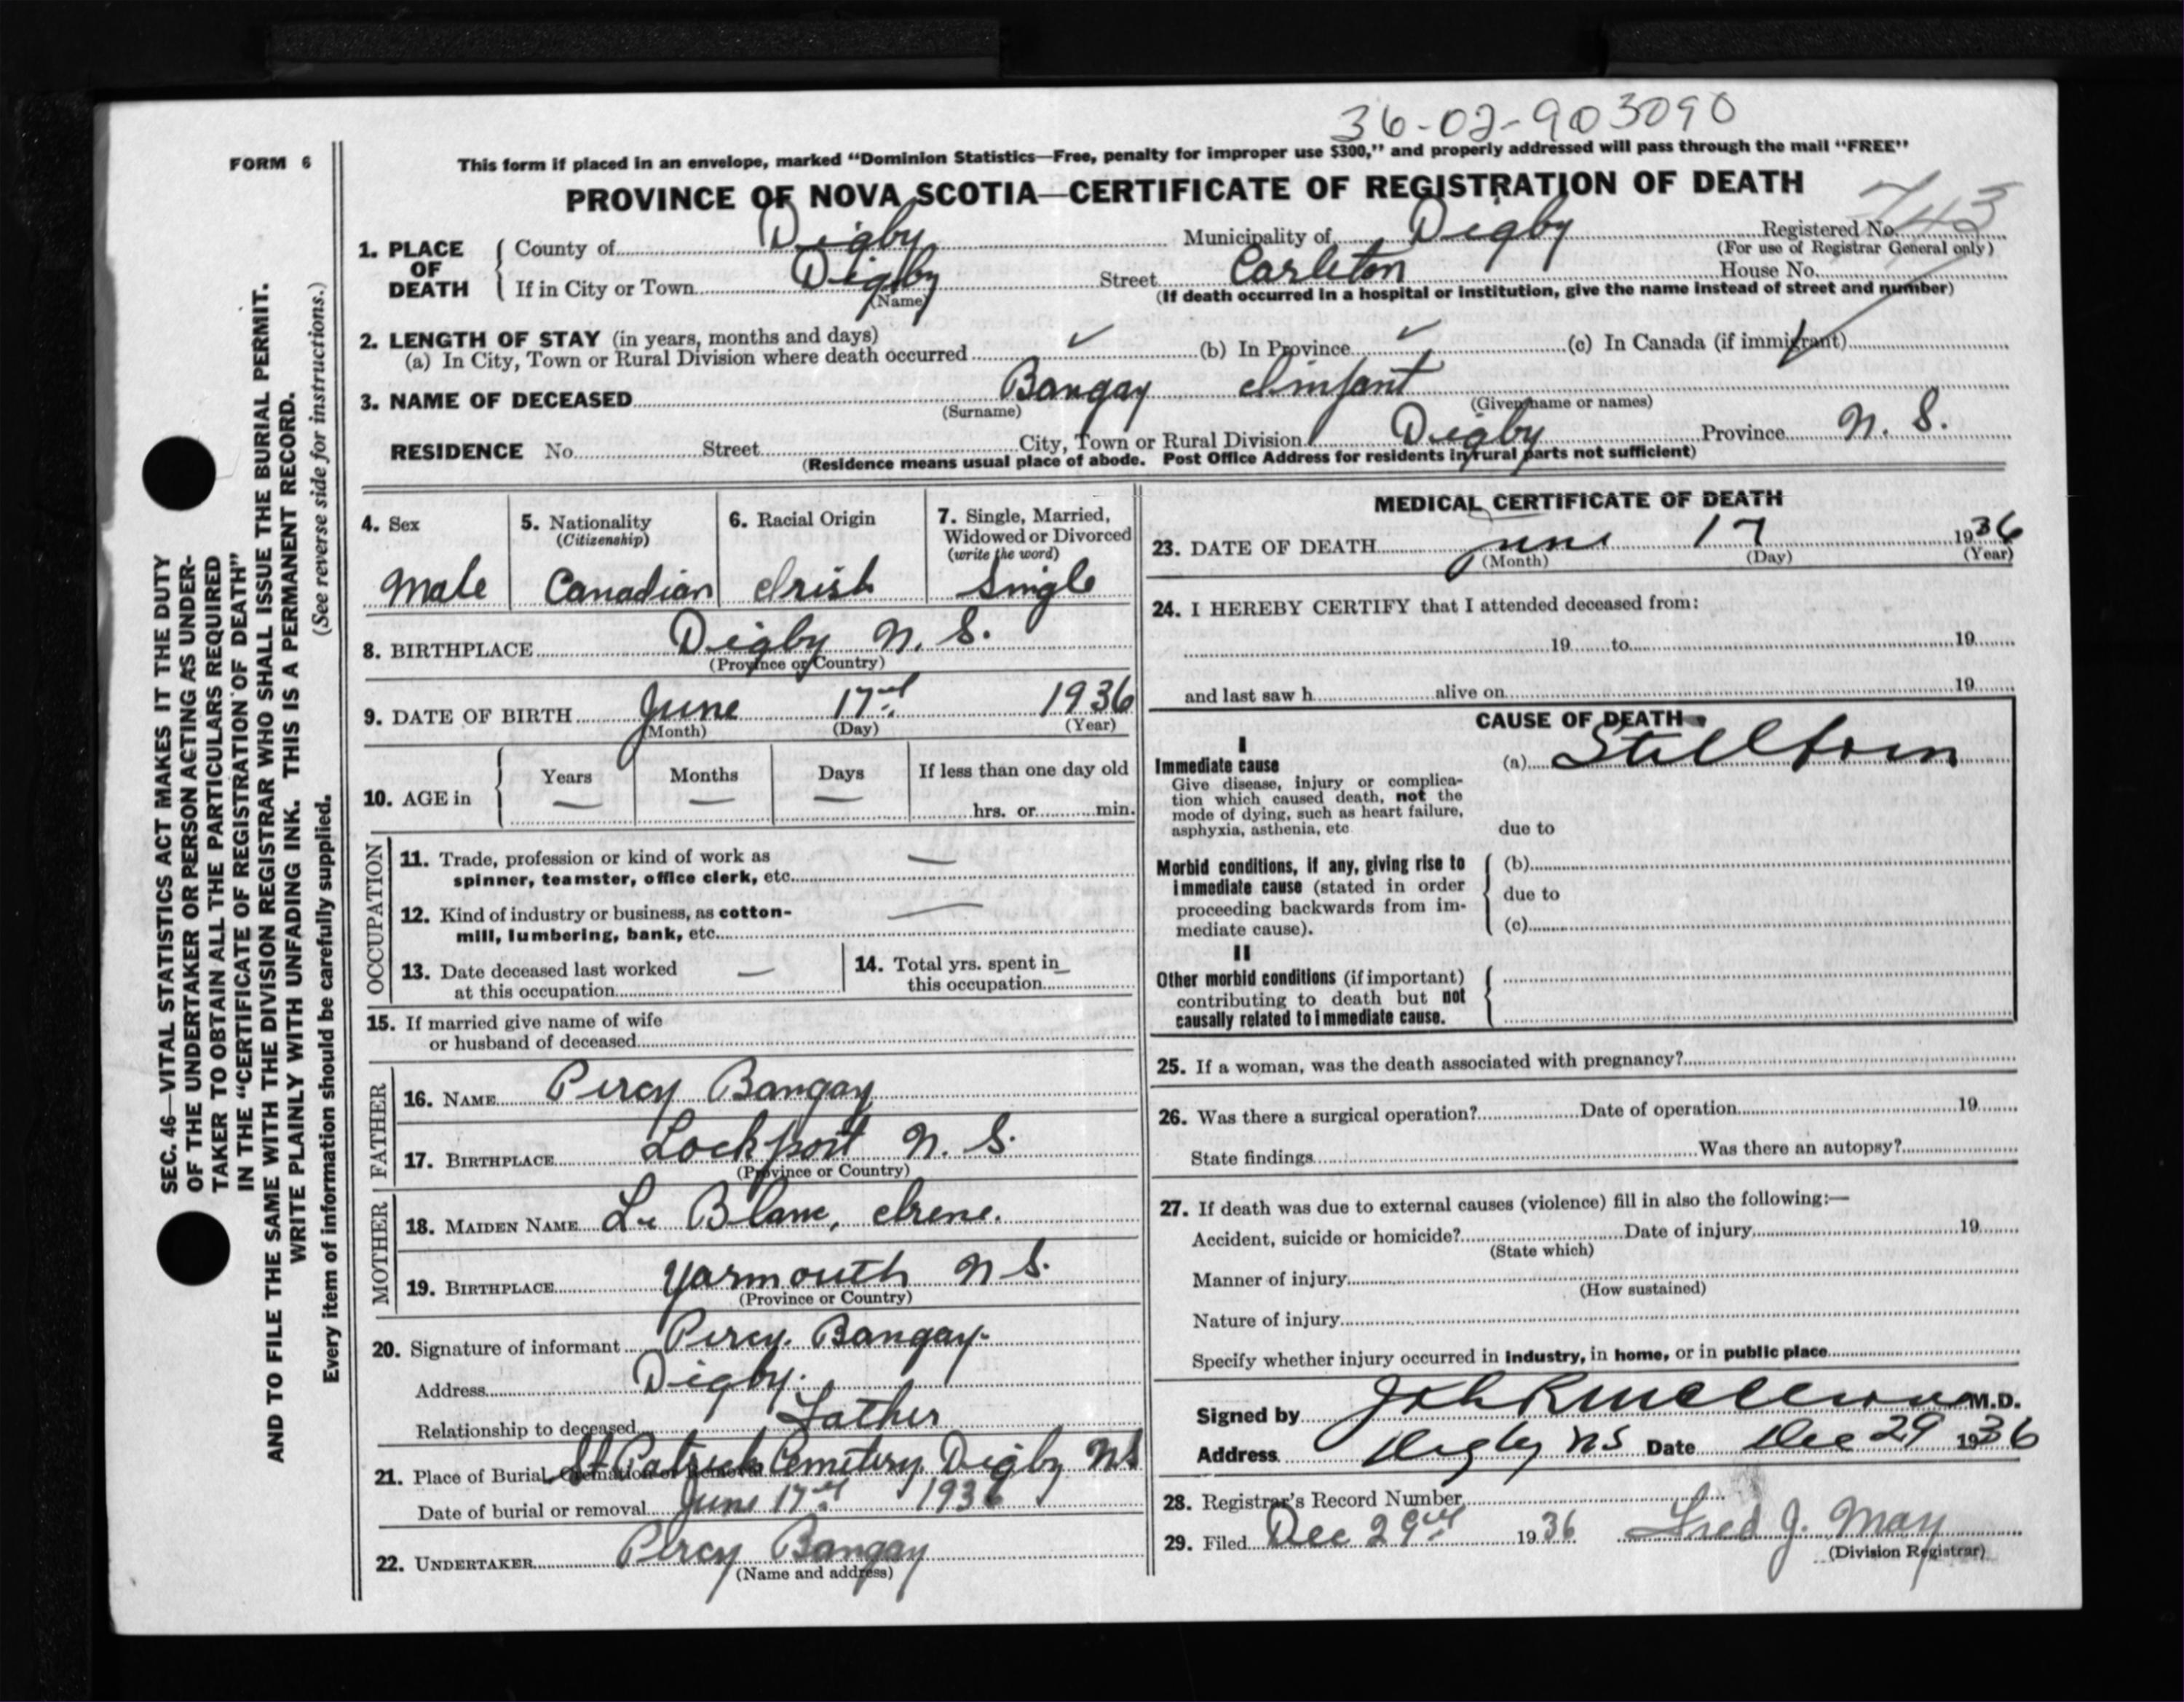 36-02-903090
FORM 6
This form if placed in an envelope, marked "Dominion Statistics—Free, penalty for improper use $300," and properly addressed will pass through the mail "FREE"
PROVINCE OF NOVA SCOTIA—CERTIFICATE OF REGISTRATION OF DEATH
743
1. PLACE OF DEATH
County of Digby Municipality of Digby Registered No.
(For use of Registrar General only)
If in City or Town Digby Street Carleton House No.
(Name) (If death occurred in a hospital or institution, give the name instead of street and number)
2. LENGTH OF STAY (in years, months and days)
(a) In City, Town or Rural Division where death occurred ✓ (b) In Province ✓ (c) In Canada (if immigrant)
3. NAME OF DECEASED Bangay Infant
(Surname) (Given name or names)
RESIDENCE No. Street City, Town or Rural Division Digby Province N. S.
(Residence means usual place of abode. Post Office Address for residents in rural parts not sufficient)
4. Sex
Male
5. Nationality
(Citizenship)
Canadian
6. Racial Origin
Irish
7. Single, Married,
Widowed or Divorced
(write the word)
Single
8. BIRTHPLACE Digby N. S.
(Province or Country)
9. DATE OF BIRTH June 17th 1936
(Month) (Day) (Year)
10. AGE in
Years — Months — Days — If less than one day old
hrs. or min.
OCCUPATION
11. Trade, profession or kind of work as —
spinner, teamster, office clerk, etc.
12. Kind of industry or business, as cotton- —
mill, lumbering, bank, etc.
13. Date deceased last worked —
at this occupation
14. Total yrs. spent in —
this occupation
15. If married give name of wife
or husband of deceased
FATHER
16. NAME Percy Bangay
17. BIRTHPLACE Lockport N. S.
(Province or Country)
MOTHER
18. MAIDEN NAME Le Blanc, Irene.
19. BIRTHPLACE Yarmouth N S.
(Province or Country)
20. Signature of informant Percy. Bangay.
Address Digby.
Relationship to deceased Father
21. Place of Burial, Cremation or Removal St Patricks Cemetery Digby NS
Date of burial or removal June 17th 1936
22. UNDERTAKER Percy Bangay
(Name and address)
MEDICAL CERTIFICATE OF DEATH
23. DATE OF DEATH June 17 1936
(Month) (Day) (Year)
24. I HEREBY CERTIFY that I attended deceased from:
19 to 19
and last saw h alive on 19
CAUSE OF DEATH
I
Immediate cause
Give disease, injury or complica-
tion which caused death, not the
mode of dying, such as heart failure,
asphyxia, asthenia, etc
(a) Stillborn
due to
Morbid conditions, if any, giving rise to
immediate cause (stated in order
proceeding backwards from im-
mediate cause).
(b)
due to
(c)
II
Other morbid conditions (if important)
contributing to death but not
causally related to immediate cause.
25. If a woman, was the death associated with pregnancy?
26. Was there a surgical operation? Date of operation 19
State findings Was there an autopsy?
27. If death was due to external causes (violence) fill in also the following:—
Accident, suicide or homicide? Date of injury 19
(State which)
Manner of injury
(How sustained)
Nature of injury
Specify whether injury occurred in industry, in home, or in public place
Signed by M.D.
Address Digby NS Date Dec 29 1936
28. Registrar's Record Number
29. Filed Dec 29th 1936 Fred J. May
(Division Registrar)
SEC. 46—VITAL STATISTICS ACT MAKES IT THE DUTY
OF THE UNDERTAKER OR PERSON ACTING AS UNDER-
TAKER TO OBTAIN ALL THE PARTICULARS REQUIRED
IN THE "CERTIFICATE OF REGISTRATION OF DEATH"
AND TO FILE THE SAME WITH THE DIVISION REGISTRAR WHO SHALL ISSUE THE BURIAL PERMIT.
WRITE PLAINLY WITH UNFADING INK. THIS IS A PERMANENT RECORD.
Every item of information should be carefully supplied. (See reverse side for instructions.)